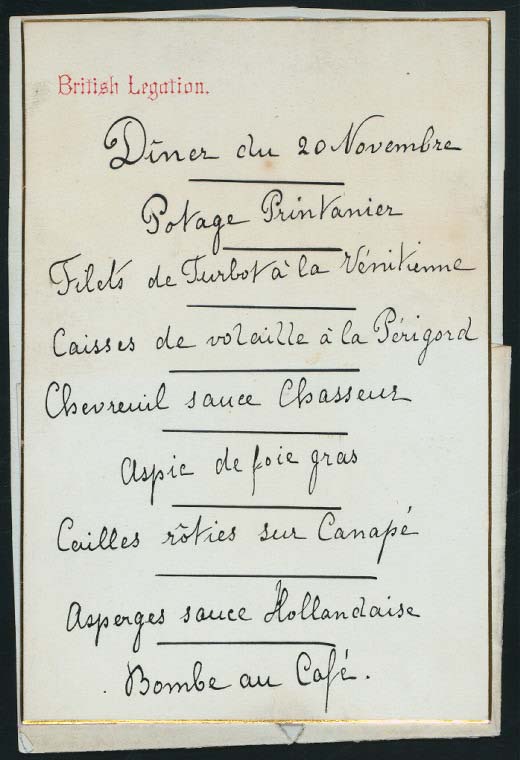 British Legation.
Dîner du 20 Novembre
Potage Printanier
Filets de Turbot à la Vénitienne
Caisses de volaille à la Périgord
Chevreuil sauce Chasseur
Aspic de foie gras
Cailles rôties sur Canapé
Asperges sauce Hollandaise
Bombe au Café.